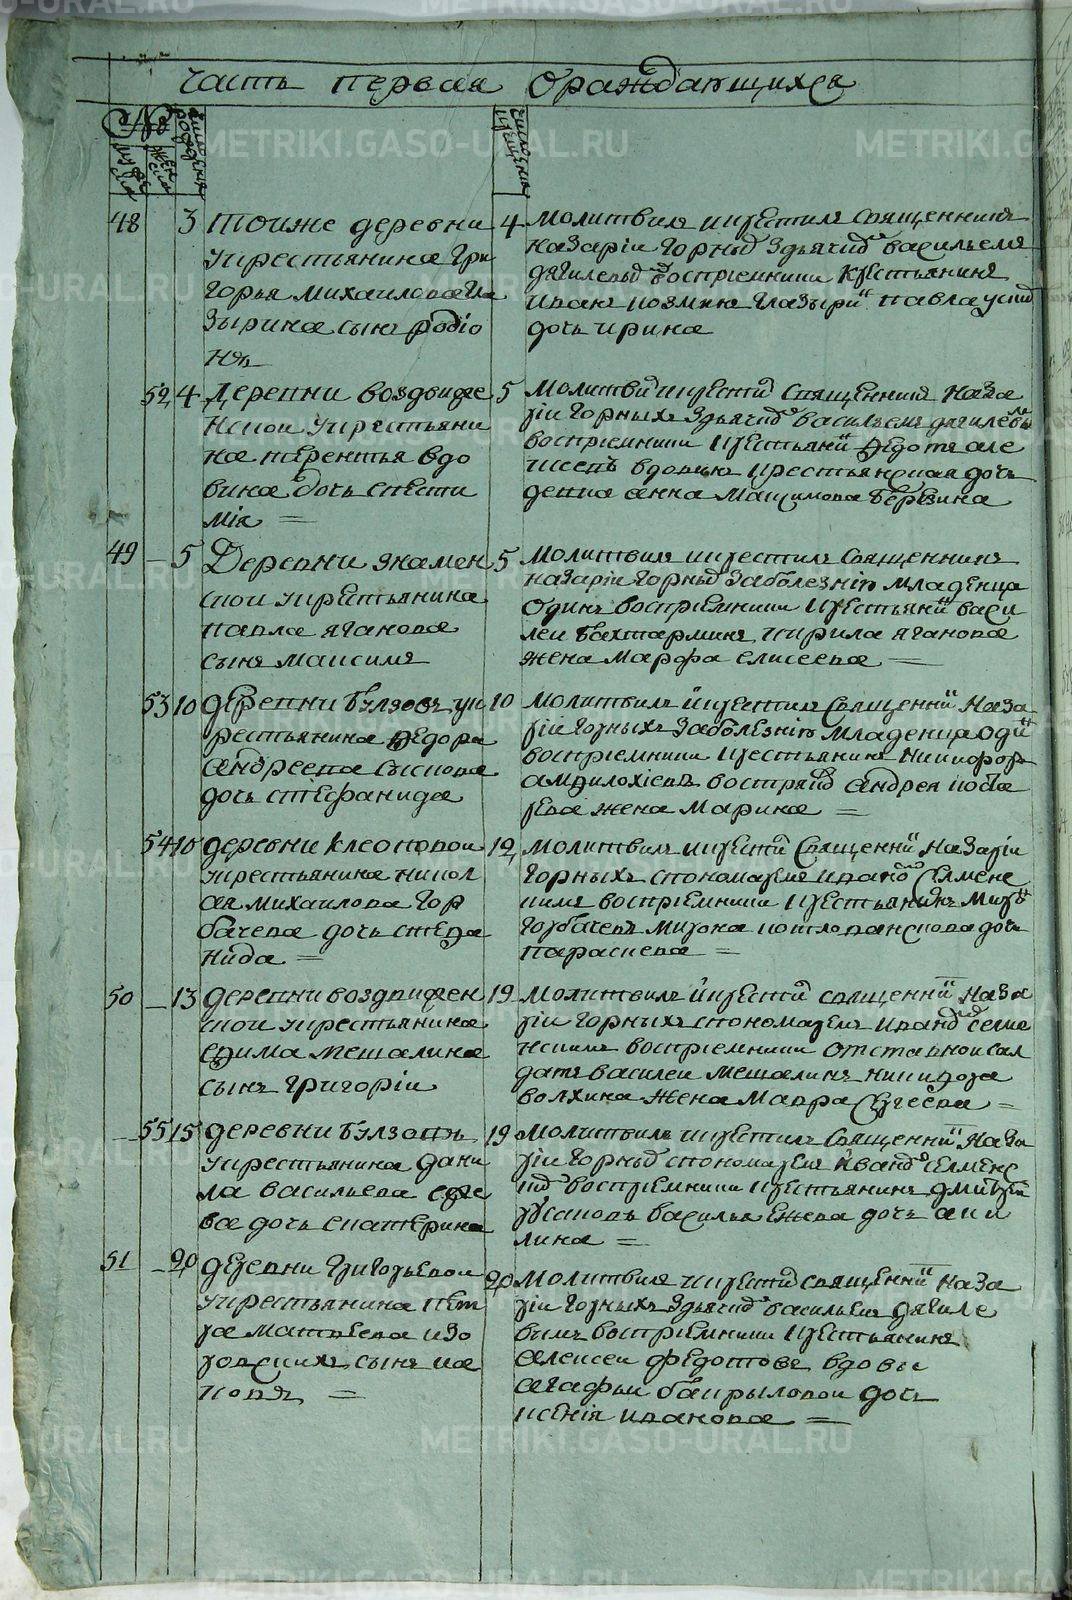 часть первая о раждающихся
№
мужеска
женска
число рожденія
число крещенія
48 3 тоиже деревни
укрестьянина Гри
горья михаилова Гла
зырина сынъ родіо
нъ
4 молитвилъ икрестилъ священникъ
назаріи Горныхъ здьячкомъ васильемъ
дягилевымъ воспріемники крестьянинъ
иванъ козминъ Глазырин павла
дочь ирина
52 4 деревни воздвиже
нской укрестьяни
на терентья вдо
вина дочь епести
мія =
5 молитвил икрестил священник наза
ріи Горныхъ здьячком васильемъ дягилевы
воспріемники крестьянин федотъ але
ксеевъ вдовины крестьянская дочь
девка анна максимова Березина
49 – 5 Деревни знамен
ской укрестьянина
павла яганова
сынъ максимъ
5 молитвилъ икрестилъ священникъ
назаріи Горных заболезнію младенца
одинъ воспріемники крестьянин васи
леи Бахтарминъ, кирила яганова
жена марфа елисеева =
53 10 деревни Бузовъ ук
рестьянина федора
андреева сыскова
дочь стефанида
10 молитвилъ икрестилъ священник наза
ріи Горныхъ заболезнію младенца оди
воспріемники крестьянинъ никифоръ
амфилохіевъ востряков андрея
жена марина =
54 10 деревни клеоповои
укрестьянина никол
ая михаилова Гор
бачева дочь стефа
нида =
12 молитвилъ икрестил священник назаріи
Горныхъ спономаремъ иваномъ селменс
кимъ воспріемники крестьянинъ
Горбачевъ мирона дочь
параскева =
50 – 13 деревни воздвижен
ской укрестьянина
ефима мешалкина
сынъ григоріи
19 молитвилъ икрестил священник наза
ріи Горныхъ спономаремъ иваном селме
нскимъ воспріемники отставнои сол
датъ василеи мешалкинъ никифора
волхина жена мавра сергеева =
– 55 15 деревни Бузовъ
укрестьянина дани
ла васильева еже
ва дочь екатерина
19 молитвилъ икрестилъ священник наза
ріи Горных спономаремъ иваном селменс
ким воспріемники крестьянинъ дмитреи
русковъ василья ежева дочь аки
лина =
51 – 20 деревни Григорьевои
укрестьянина пет
ра матвеева изо
ровскихъ сынъ иа
ковъ =
20 молитвилъ икрестил священник наза
ріи Горныхъ здьячком васильемъ дягиле
вымъ воспріемники крестьянинъ
алексеи федотовъ вдовы
агафьи бакрыловои дочь
ксенія иванова =
METRIKI.GASO-URAL.RU